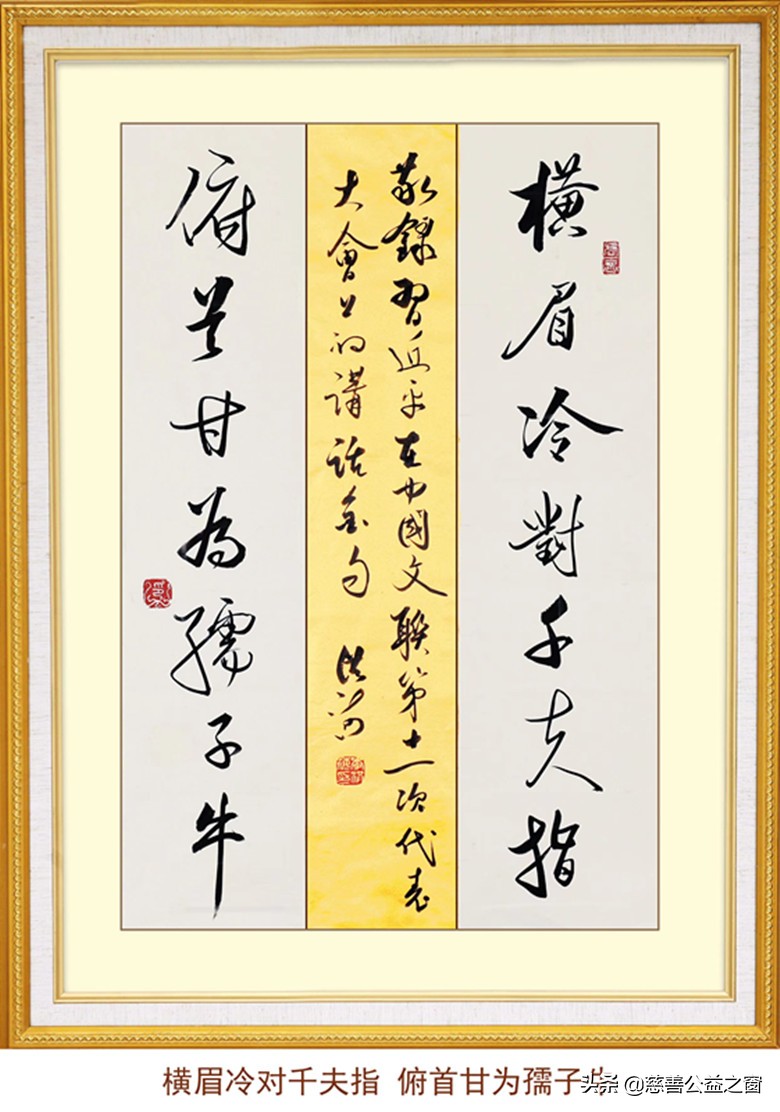 橫眉冷對千夫指
敬錄習近平在中國文聯第十一次代表
大會上的講話金句
俯首甘為孺子牛
横眉冷对千夫指 俯首甘为孺子
头条 @慈善公益之窗